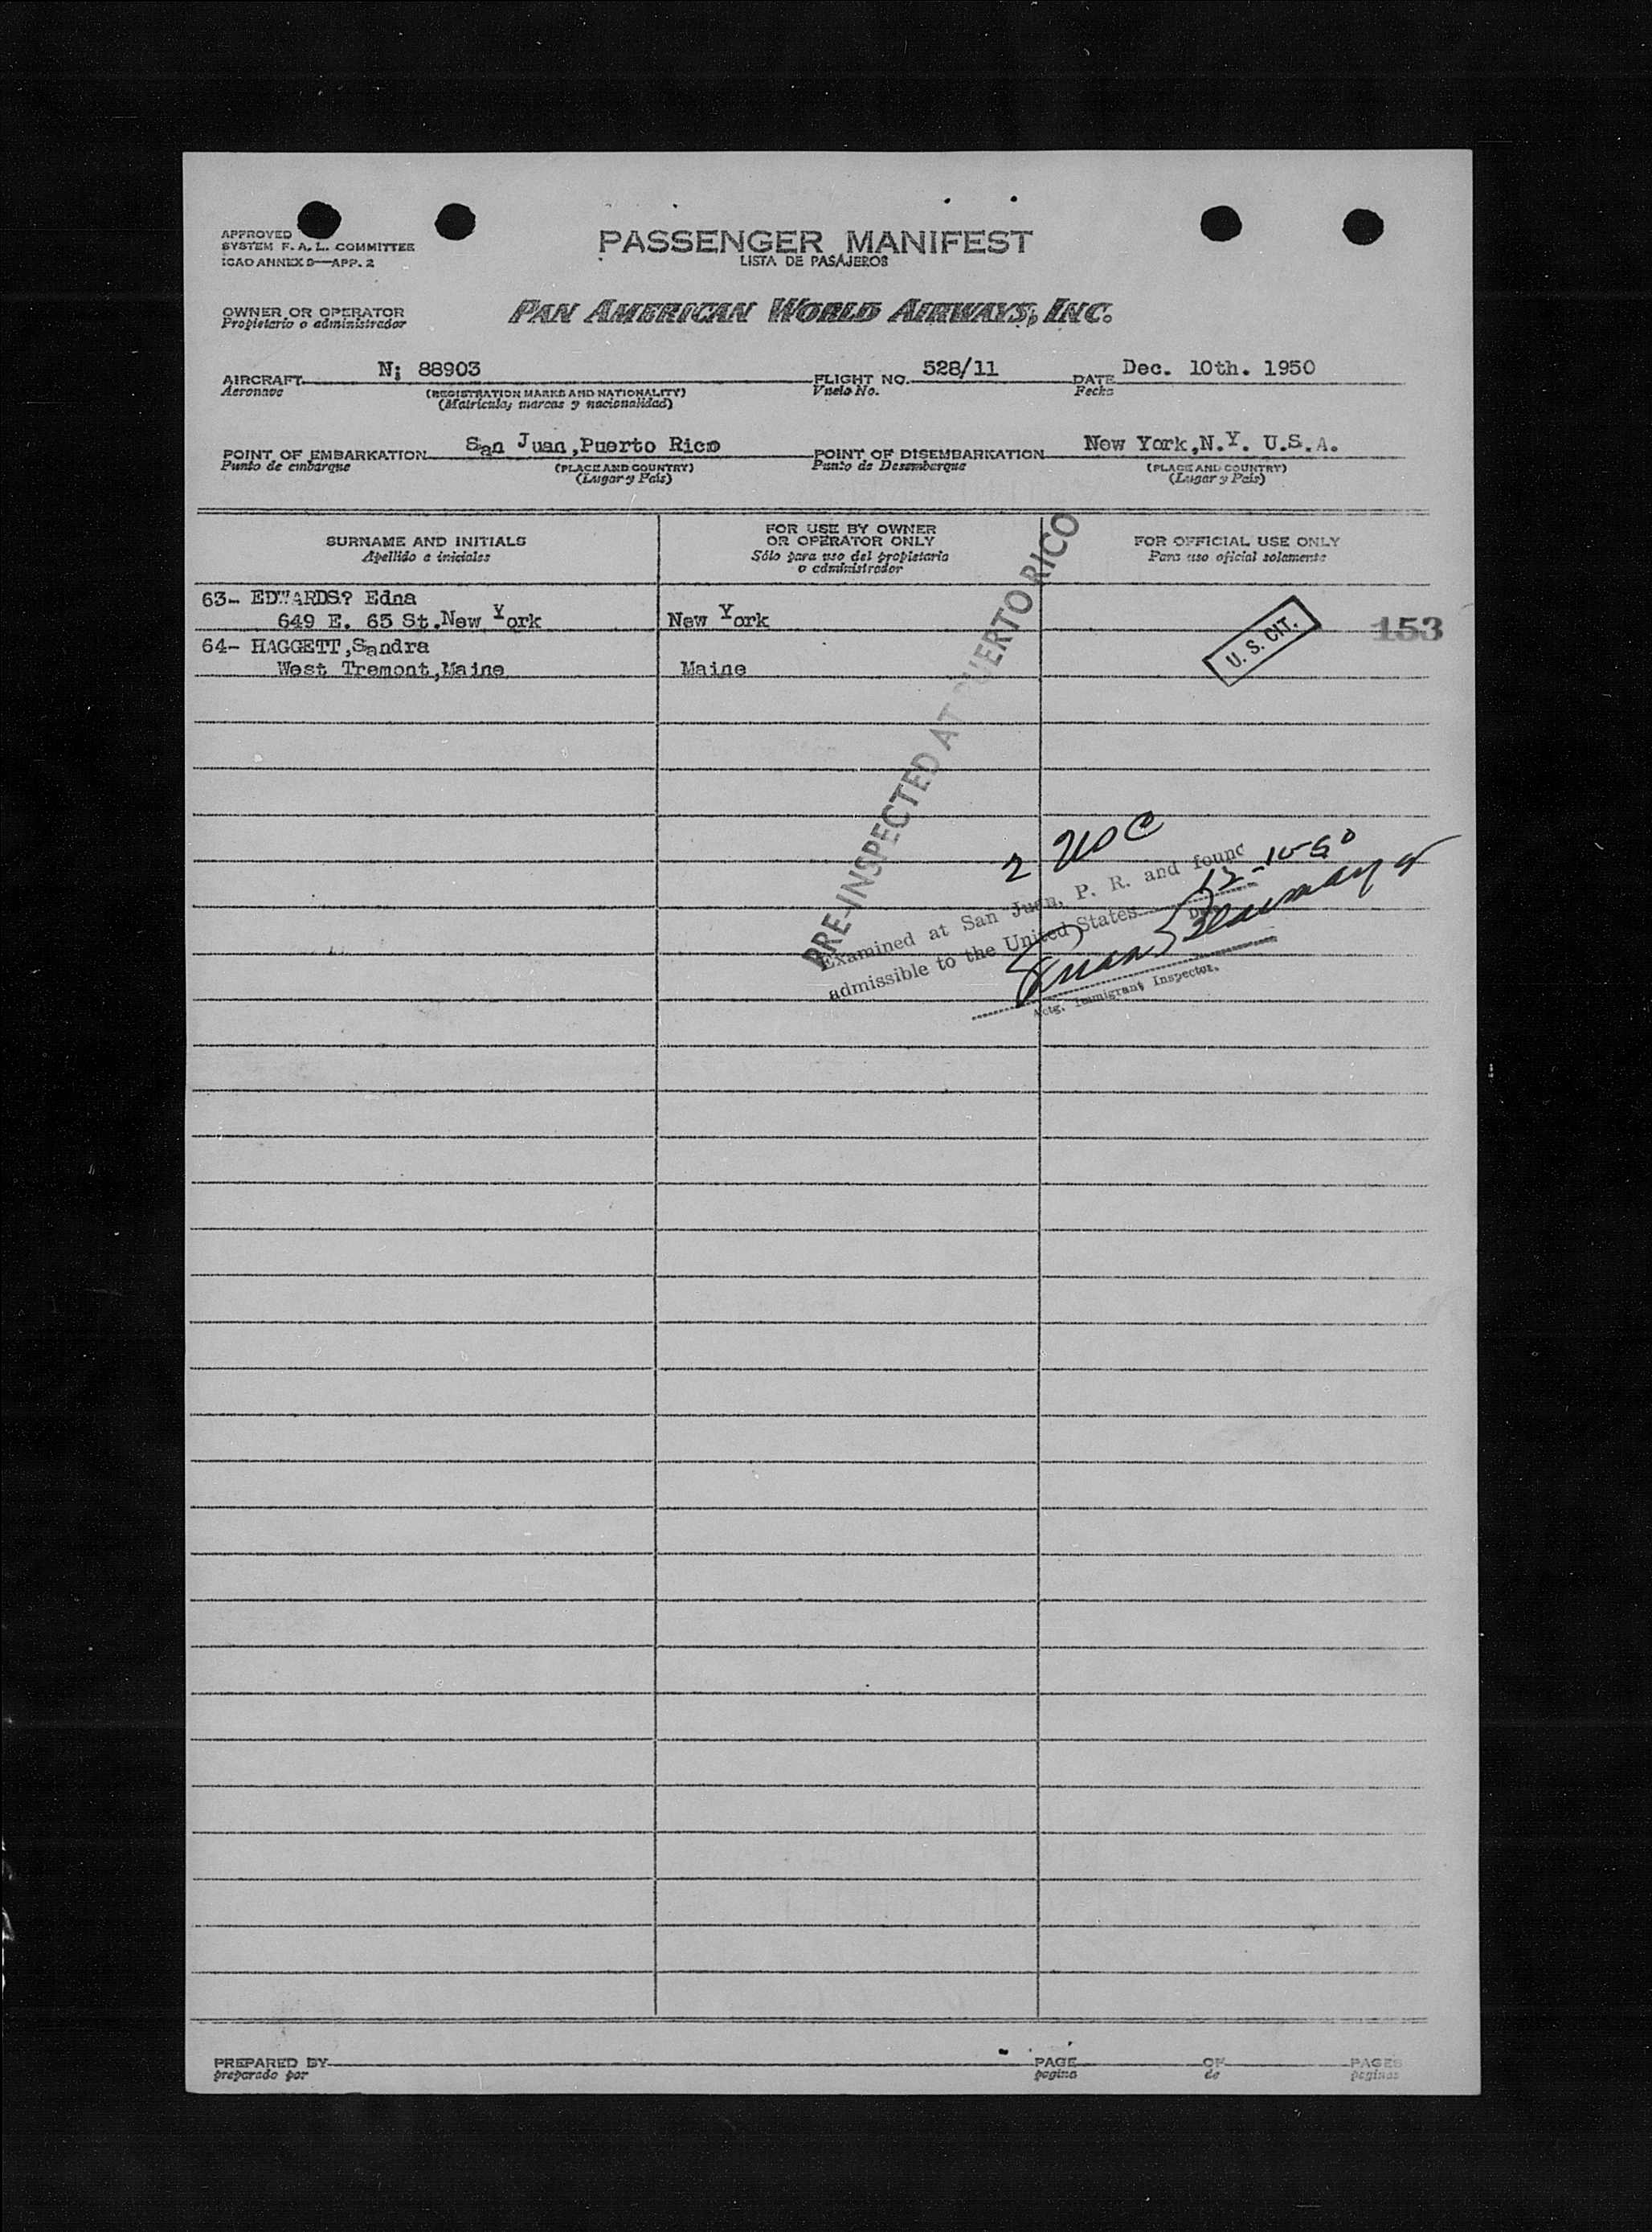 APPROVED
SYSTEM F. A. L. COMMITTEE
ICAO ANNEX 9—APP. 2
PASSENGER MANIFEST
LISTA DE PASAJEROS
OWNER OR OPERATOR
Propietario o administrador
PAN AMERICAN WORLD AIRWAYS, INC.
AIRCRAFT N; 88903 FLIGHT NO. 528/11 DATE Dec. 10th. 1950
Aeronave (REGISTRATION MARKS AND NATIONALITY) Vuelo No. Fecha
(Matricula, marcas y nacionalidad)
POINT OF EMBARKATION San Juan,Puerto Rico POINT OF DISEMBARKATION New York,N.Y. U.S.A.
Punto de embarque (PLACE AND COUNTRY) Punto de Desembarque (PLACE AND COUNTRY)
(Lugar y Pais) (Lugar y Pais)
SURNAME AND INITIALS FOR USE BY OWNER OR OPERATOR ONLY FOR OFFICIAL USE ONLY
Apellido e iniciales Sólo para uso del propietario o administrador Para uso oficial solamente
63- EDWARDS? Edna
649 E. 65 St.New York New York
U. S. CIT. 153
64- HAGGETT,Sandra
West Tremont,Maine Maine
PRE-INSPECTED AT PUERTO RICO
2 USC
Examined at San Juan, P. R. and found
admissible to the United States 12-10-50
Date
Actg. Immigrant Inspector.
PREPARED BY PAGE OF PAGES
preparado por pagina de paginas